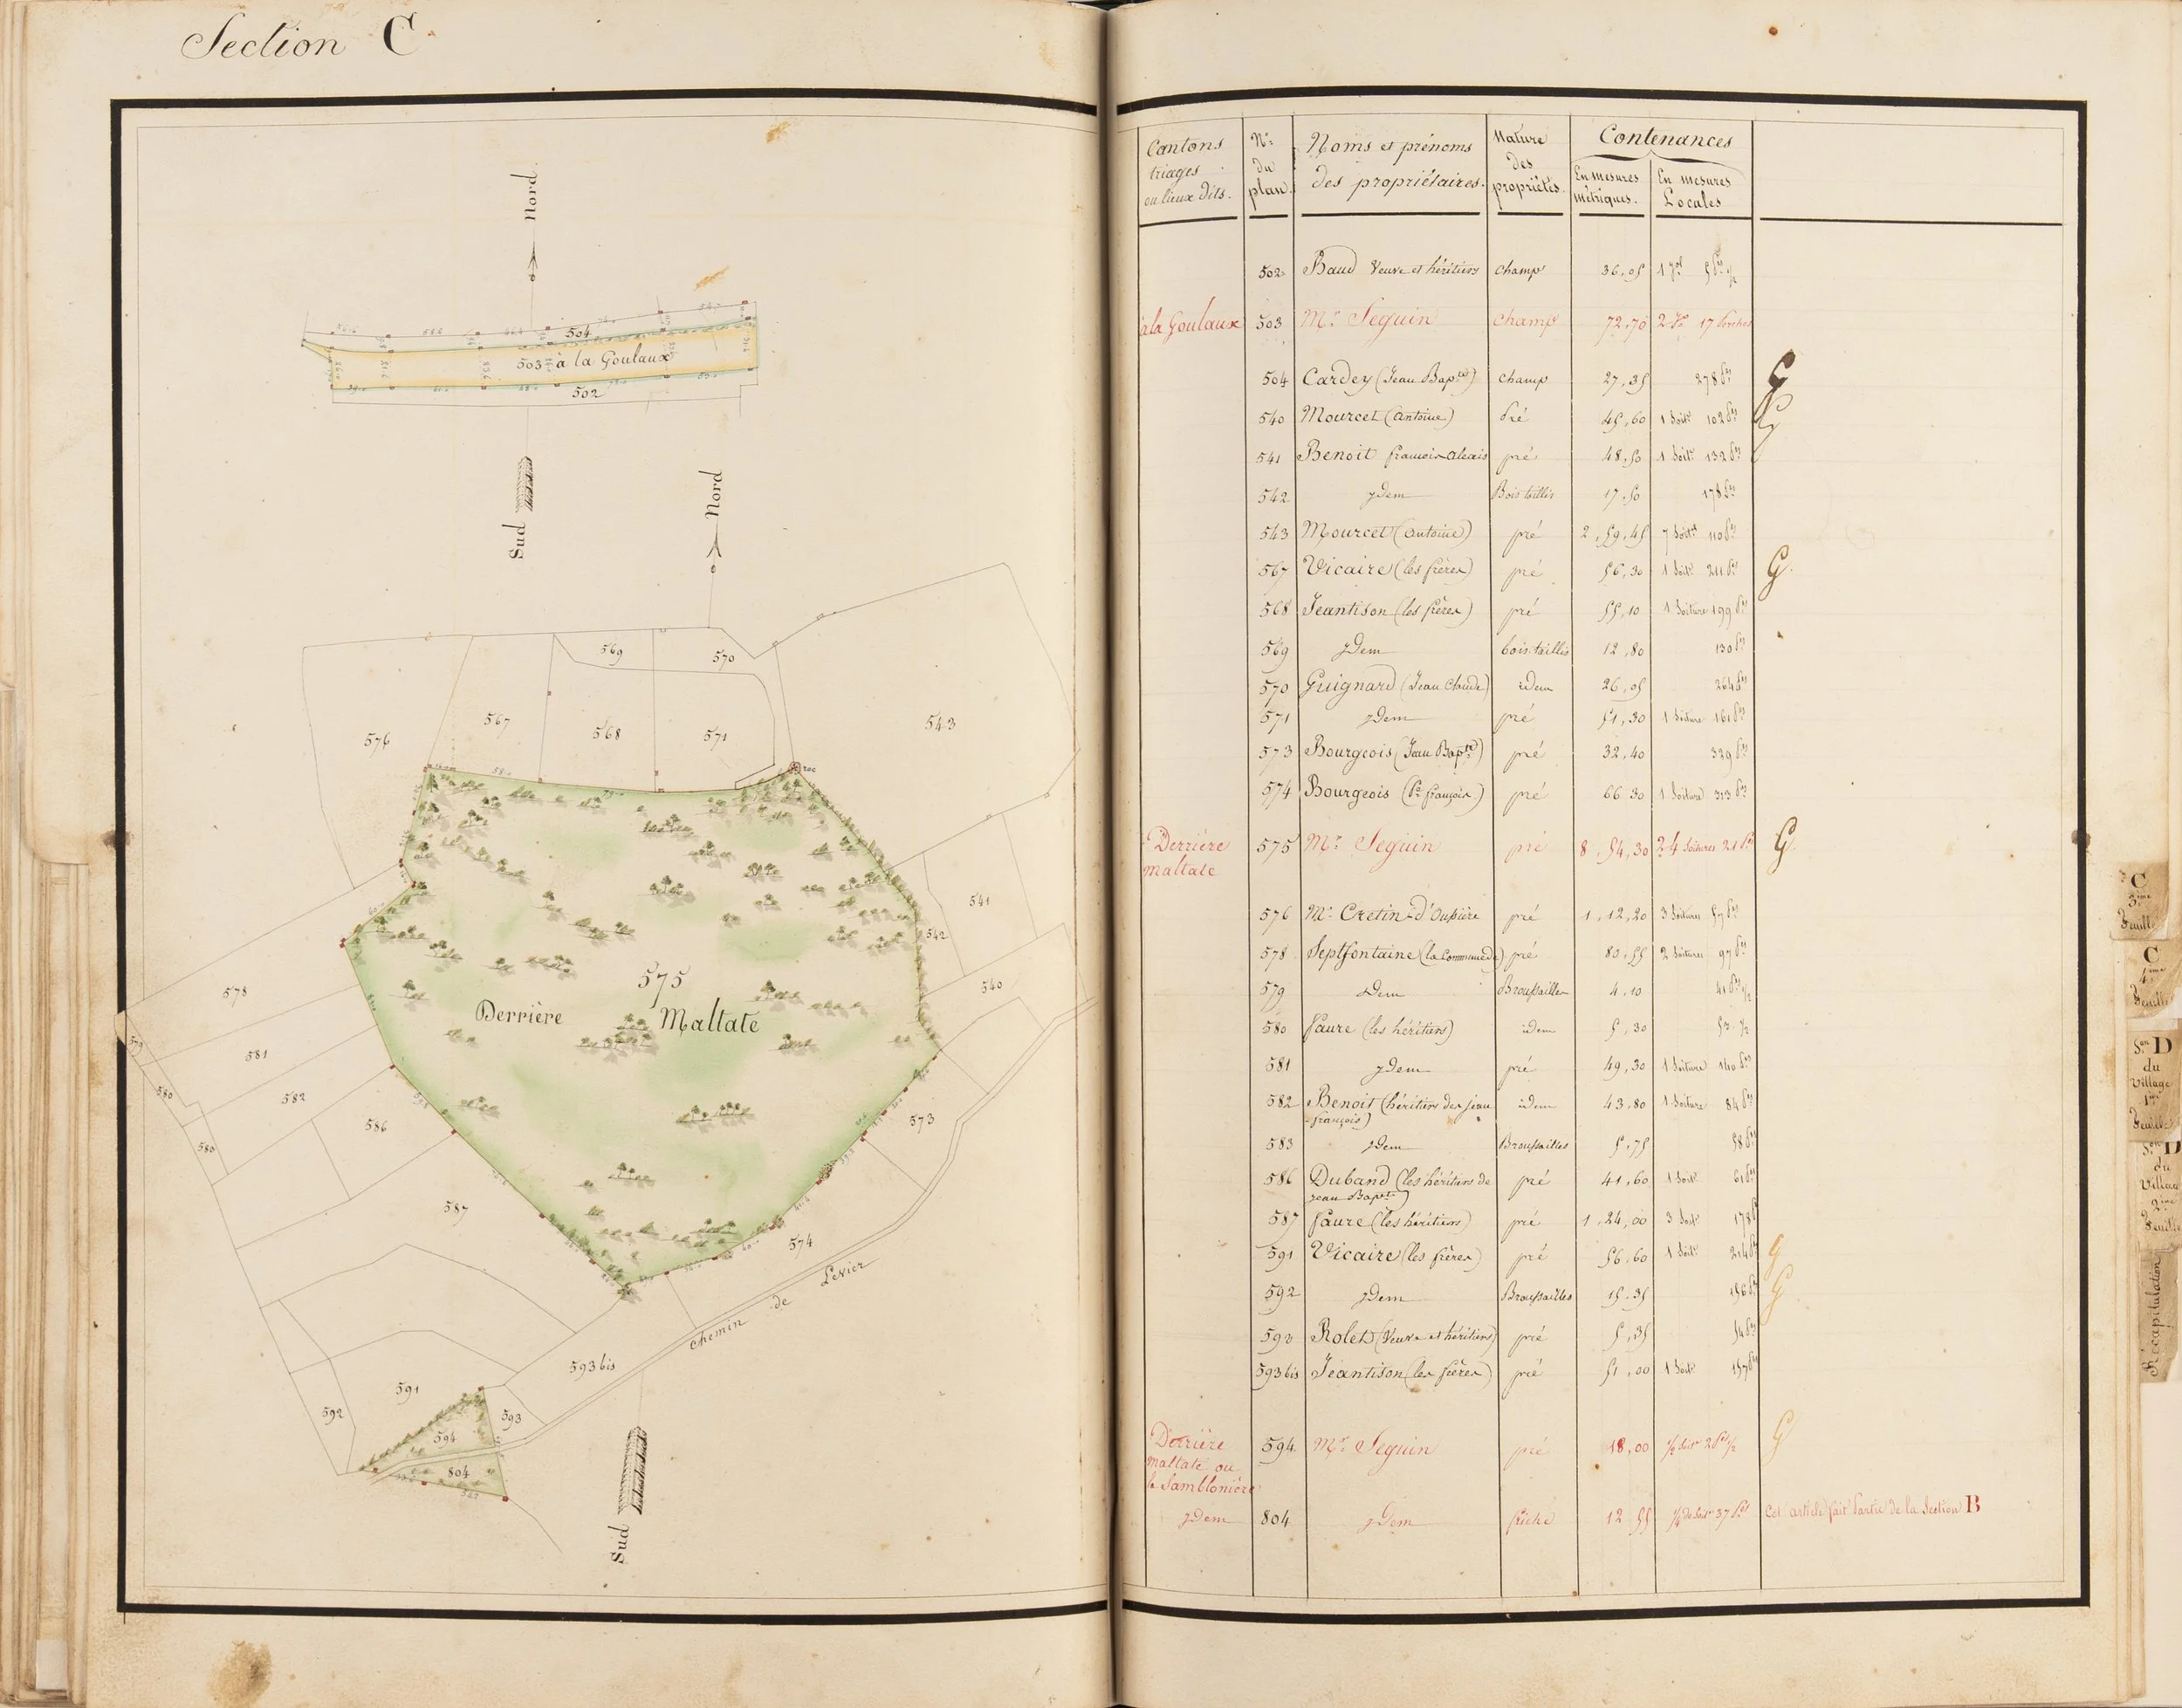 Section C.
Nord
504
503 à la Goulaux
502
Sud
Nord
569
570
576
567
568
571
543
roc
541
542
540
578
575
Derrière Maltate
579
581
580
582
586
573
580
587
574
Chemin de Levier
593 bis
591
592
593
594
804
Sud
Cantons triages ou lieux dits.
Nos du plan.
Noms et prénoms des propriétaires.
Nature des propriétés.
Contenances
En mesures métriques.
En mesures Locales
502 Baud Veuve et héritiers champ 36,05
à la Goulaux 503 Mr Seguin champ 72,70 17 Perches
504 Cardey (Jean Bapte) champ 27,35 278 Pes G
540 Mourcet (Antoine) Pré 45,60 1 Soitre 102 Pes
541 Benoit françois alexis pré 48,50 1 Soitre 132 Pes
542 jdem Bois taillis 17,50 178 Pes
543 Mourcet (Antoine) pré 2,59,45 7 Soitres 110 Pes
567 Vicaire (les frères) pré 56,30 1 Soitre 211 Pes G.
568 Jeantison (les frères) pré 55,10 1 Soiture 199 Pes
569 jdem bois taillis 12,80 130 Pes
570 Guignard (Jean Claude) idem 26,05 264 Pes
571 jdem pré 51,30 1 Soiture 161 Pes
573 Bourgeois (Jean Bapte) pré 32,40 329 Pes
574 Bourgeois (Pre françois) pré 66,30 1 Soiture 313 Pes
Derrière maltate 575 Mr Seguin pré 8,54,30 24 Soitures 21 Pes G.
576 Mr Cretin-d'Oussière pré 1,12,20 3 Soitures 57 Pes
578 Septfontaine (la Commune de) pré 80,55 2 Soitures 97 Pes
579 jdem Broussailles 4,10 41 Pes 1/2
580 faure (les héritiers) idem 5,30 53 1/2
581 jdem pré 49,30 1 Soiture 140 Pes
582 Benoit (héritiers de jean idem 43,80 1 Soiture 84 Pes
françois)
583 jdem Broussailles 5,75 58 Pes
586 Duband (les héritiers de pré 41,60 1 Soitre 61 Pes
Jean Bapte)
587 faure (les héritiers) pré 1,24,00 3 Soitres 178 Pes
591 Vicaire (les frères) pré 56,60 1 Soitre 214 Pes G
592 jdem Broussailles 15,35 156 Pes G
593 Rolet (Veuve et héritiers) pré 5,35 54 Pes
593 bis Jeantison (les frères) pré 51,00 1 Soitre 157 Pes
Derrière maltate ou la Samblonière 594 Mr Seguin pré 18,00 1/2 Soitre 2 Pes 1/2 G
jdem 804 jdem friche 12,55 37 Pes Cet article fait Partie de la Section B
C
3ème
feuille
C
4ème
feuille
Son D
du
Village
1ère
feuille
Son D
du
Village
2ème
feuille
Récapitulation